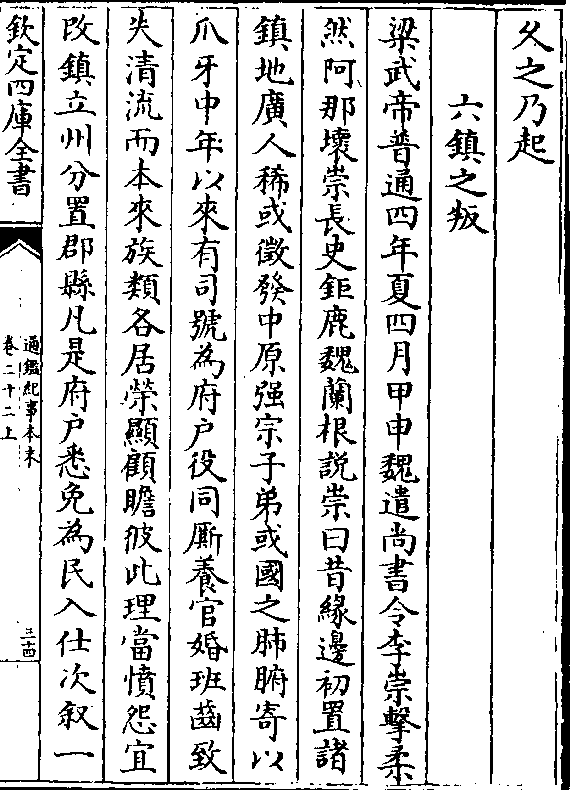 久之乃起
六鎮之叛
梁武帝普通四年夏四月甲申魏遣尚書令李崇擊柔
然阿那壞崇長史鉅鹿魏蘭根説崇曰昔緣邊初置諸
鎮地廣人稀或徵發中原强宗子弟或國之肺腑寄以
爪牙中年以來有司號為府户役同厮養官婚班齒致
失清流而本來族類各居榮顯顧瞻彼此理當憤怨宜
改鎮立州分置郡縣凡是府户悉免為民入仕次叙一
欽定四庫全書
通鑑紀事本末
卷二十二上
三十四